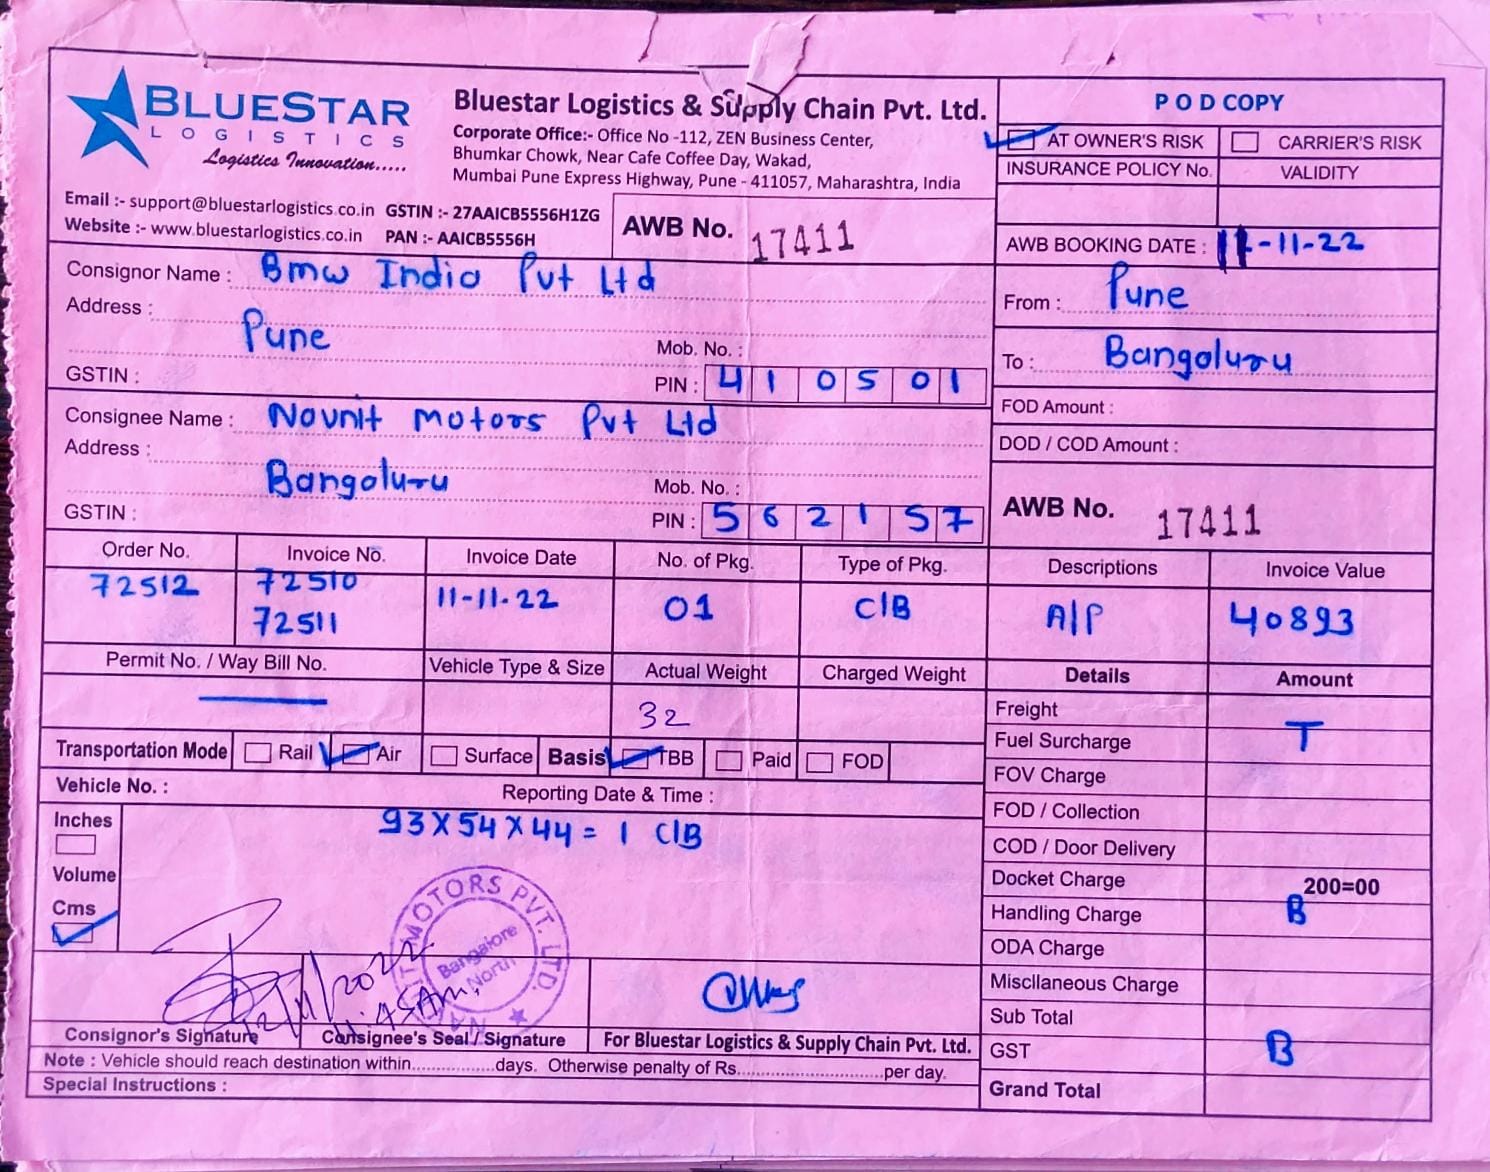 BLUESTAR
LOGISTICS
Logistics Innovation.....
Bluestar Logistics & Supply Chain Pvt. Ltd.
Corporate Office:- Office No -112, ZEN Business Center,
Bhumkar Chowk, Near Cafe Coffee Day, Wakad,
Mumbai Pune Express Highway, Pune - 411057, Maharashtra, India
Email :- support@bluestarlogistics.co.in GSTIN :- 27AAICB5556H1ZG
Website :- www.bluestarlogistics.co.in PAN :- AAICB5556H
AWB No. 17411
POD COPY
AT OWNER'S RISK CARRIER'S RISK
INSURANCE POLICY No. VALIDITY
AWB BOOKING DATE : 11-11-22
From : Pune
To : Bangaluru
FOD Amount :
DOD / COD Amount :
AWB No. 17411
Consignor Name : Bmw India Pvt Ltd
Address :
Pune
Mob. No. :
GSTIN : PIN : 410501
Consignee Name : Navnit Motors Pvt Ltd
Address :
Bangaluru
Mob. No. :
GSTIN : PIN : 562157
Order No. Invoice No. Invoice Date No. of Pkg. Type of Pkg. Descriptions Invoice Value
72512 72510 11-11-22 01 C/B A/P 40893
72511
Permit No. / Way Bill No. Vehicle Type & Size Actual Weight Charged Weight Details Amount
32
Transportation Mode Rail Air Surface Basis TBB Paid FOD
Vehicle No. : Reporting Date & Time :
Inches
Volume
Cms
93 X 54 X 44 = 1 C/B
Freight
Fuel Surcharge T
FOV Charge
FOD / Collection
COD / Door Delivery
Docket Charge 200=00
Handling Charge B
ODA Charge
Miscllaneous Charge
Sub Total
GST B
Grand Total
MOTORS PVT. LTD.
Bangalore
North
12/11/2022
Consignor's Signature Consignee's Seal / Signature For Bluestar Logistics & Supply Chain Pvt. Ltd.
Note : Vehicle should reach destination within................days. Otherwise penalty of Rs............................per day.
Special Instructions :